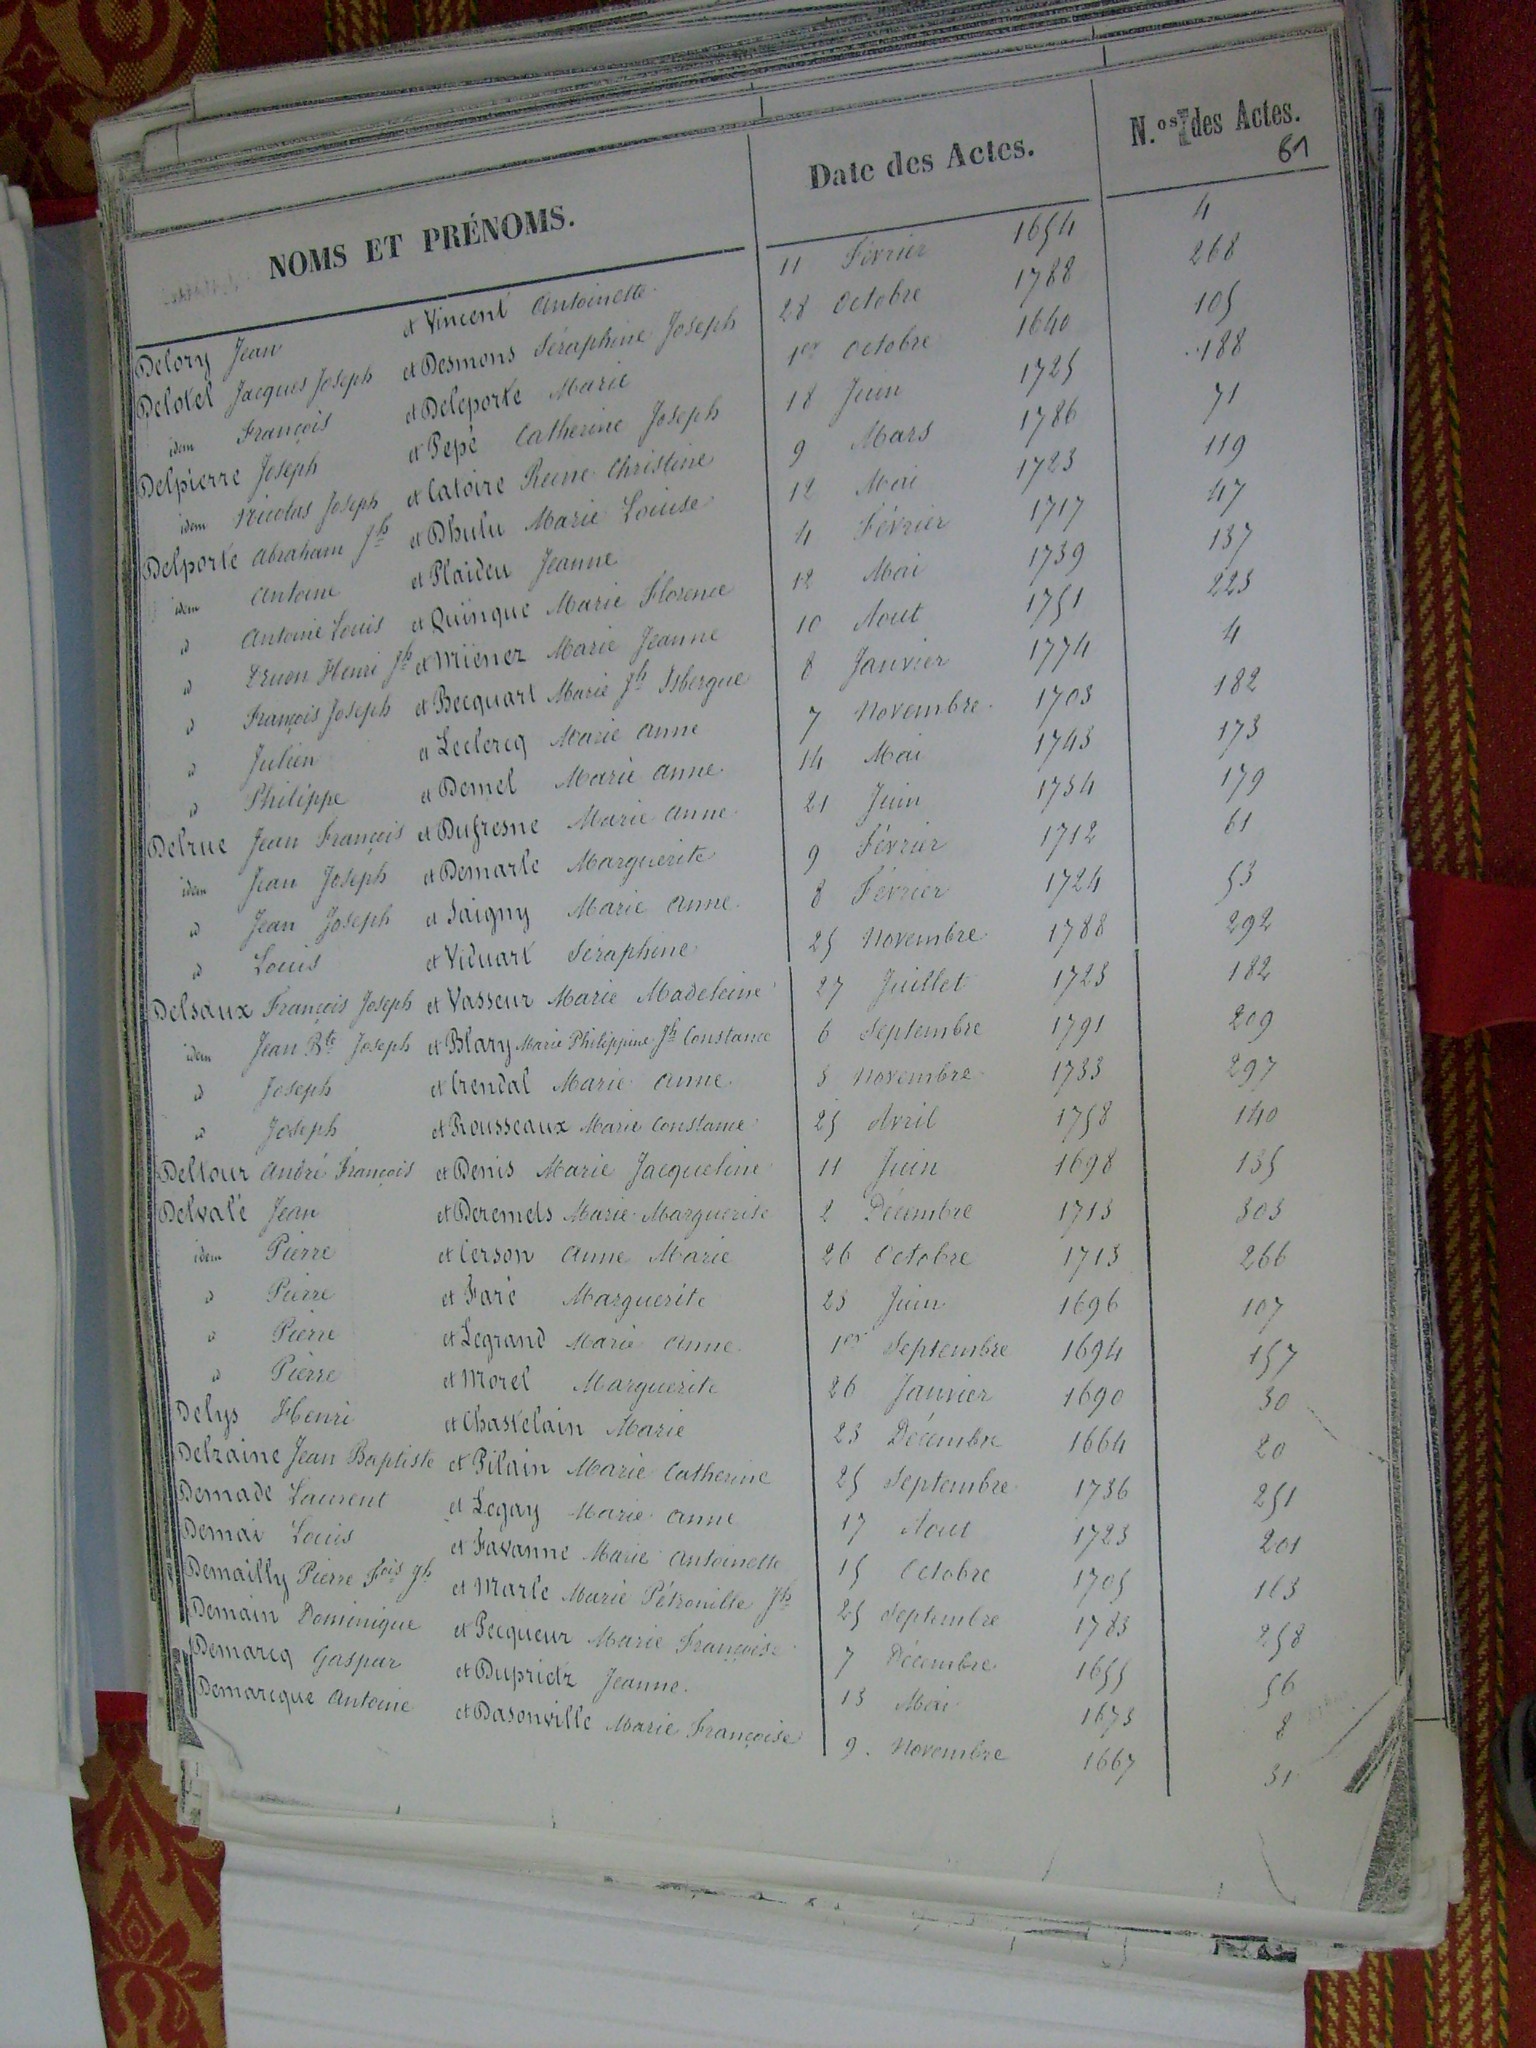 NOMS ET PRÉNOMS. Date des Actes. N.os des Actes.
61
Delory Jean et Vincent Antoinette 11 Février 1654 4
Delotel Jacques Joseph et Desmons Séraphine Joseph 28 Octobre 1788 268
idem François et Deleporte Marie 1er Octobre 1640 105
Delpierre Joseph et Pepé Catherine Joseph 18 Juin 1725 188
idem Nicolas Joseph et Catoire Reine Christine 9 Mars 1786 71
Delporte Abraham Jh et Dhulu Marie Louise 12 Mai 1723 119
idem Antoine et Plaideu Jeanne 4 Février 1717 47
id Antoine Louis et Quinque Marie Florence 12 Mai 1739 137
id Druon Henri Jh et Miénez Marie Jeanne 10 Aout 1751 223
id François Joseph et Becquart Marie Jh Isbergue 8 Janvier 1774 4
id Julien et Leclercq Marie Anne 7 Novembre 1703 182
id Philippe et Demel Marie Anne 14 Mai 1743 173
Delrue Jean François et Dufresne Marie Anne 21 Juin 1734 179
idem Jean Joseph et Demarle Marguerite 9 Février 1712 61
id Jean Joseph et Saigny Marie Anne 8 Février 1724 53
id Louis et Viduart Séraphine 25 Novembre 1788 292
Delsaux François Joseph et Vasseur Marie Madeleine 27 Juillet 1723 182
idem Jean Bte Joseph et Blary Marie Philippine Jh Constance 6 Septembre 1791 209
id Joseph et Crendal Marie Anne 3 Novembre 1733 297
id Joseph et Rousseaux Marie Constance 25 Avril 1758 140
Deltour André François et Denis Marie Jacqueline 11 Juin 1698 135
Delvalé Jean et Deremets Marie Marguerite 2 Décembre 1713 303
idem Pierre et Cerson Anne Marie 26 Octobre 1713 266
id Pierre et Faré Marguerite 23 Juin 1696 107
id Pierre et Legrand Marie Anne 1er Septembre 1694 157
id Pierre et Morel Marguerite 26 Janvier 1690 30
Delys Henri et Chastelain Marie 23 Décembre 1664 20
Delzaine Jean Baptiste et Pilain Marie Catherine 25 Septembre 1736 251
Demade Laurent et Legay Marie Anne 17 Aout 1723 201
Demai Louis et Favanne Marie Antoinette 15 Octobre 1705 163
Demailly Pierre Fois Jh et Marle Marie Pétronille Jh 25 Septembre 1783 258
Demain Dominique et Pecqueur Marie Françoise 7 Décembre 1655 56
Demarcq Gaspar et Dupriez Jeanne. 13 Mai 1673 8
Demarcque Antoine et Dasonville Marie Françoise 9. Novembre 1667 31